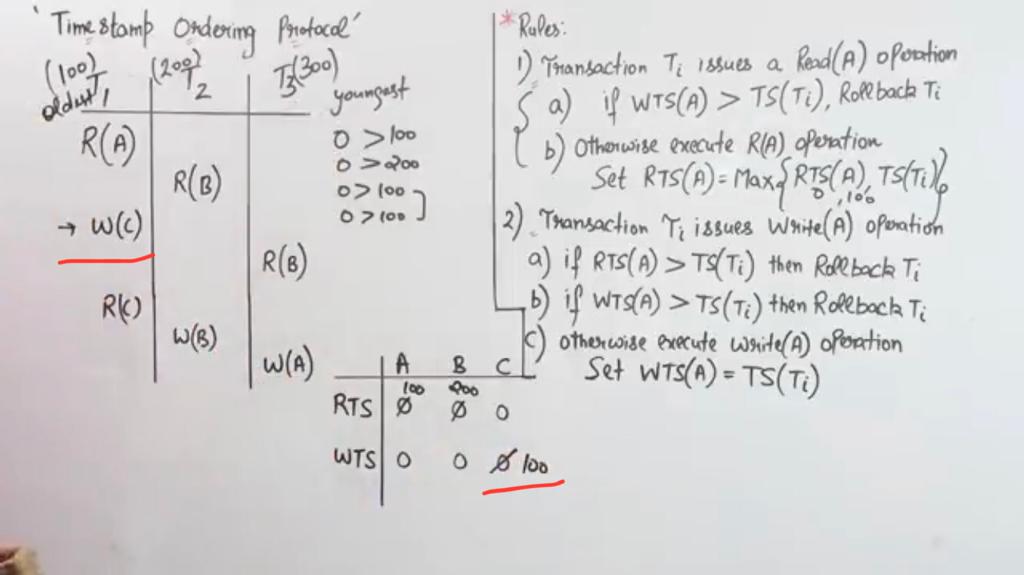 'Timestamp Ordering Protocol'
(100) (200) (300)
T1 T2 T3
oldest youngest
R(A)
R(B)
→ W(C)
R(B)
R(C)
W(B)
W(A)
0 > 100
0 > 200
0 > 100
0 > 100
A B C
100 200
RTS 0 0 0
WTS 0 0 0 100
* Rules:
1) Transaction Ti issues a Read(A) operation
a) if WTS(A) > TS(Ti), Rollback Ti
b) Otherwise execute R(A) operation
Set RTS(A) = Max{RTS(A), TS(Ti)}
0, 100
2) Transaction Ti issues Write(A) operation
a) if RTS(A) > TS(Ti) then Rollback Ti
b) if WTS(A) > TS(Ti) then Rollback Ti
c) otherwise execute write(A) operation
Set WTS(A) = TS(Ti)